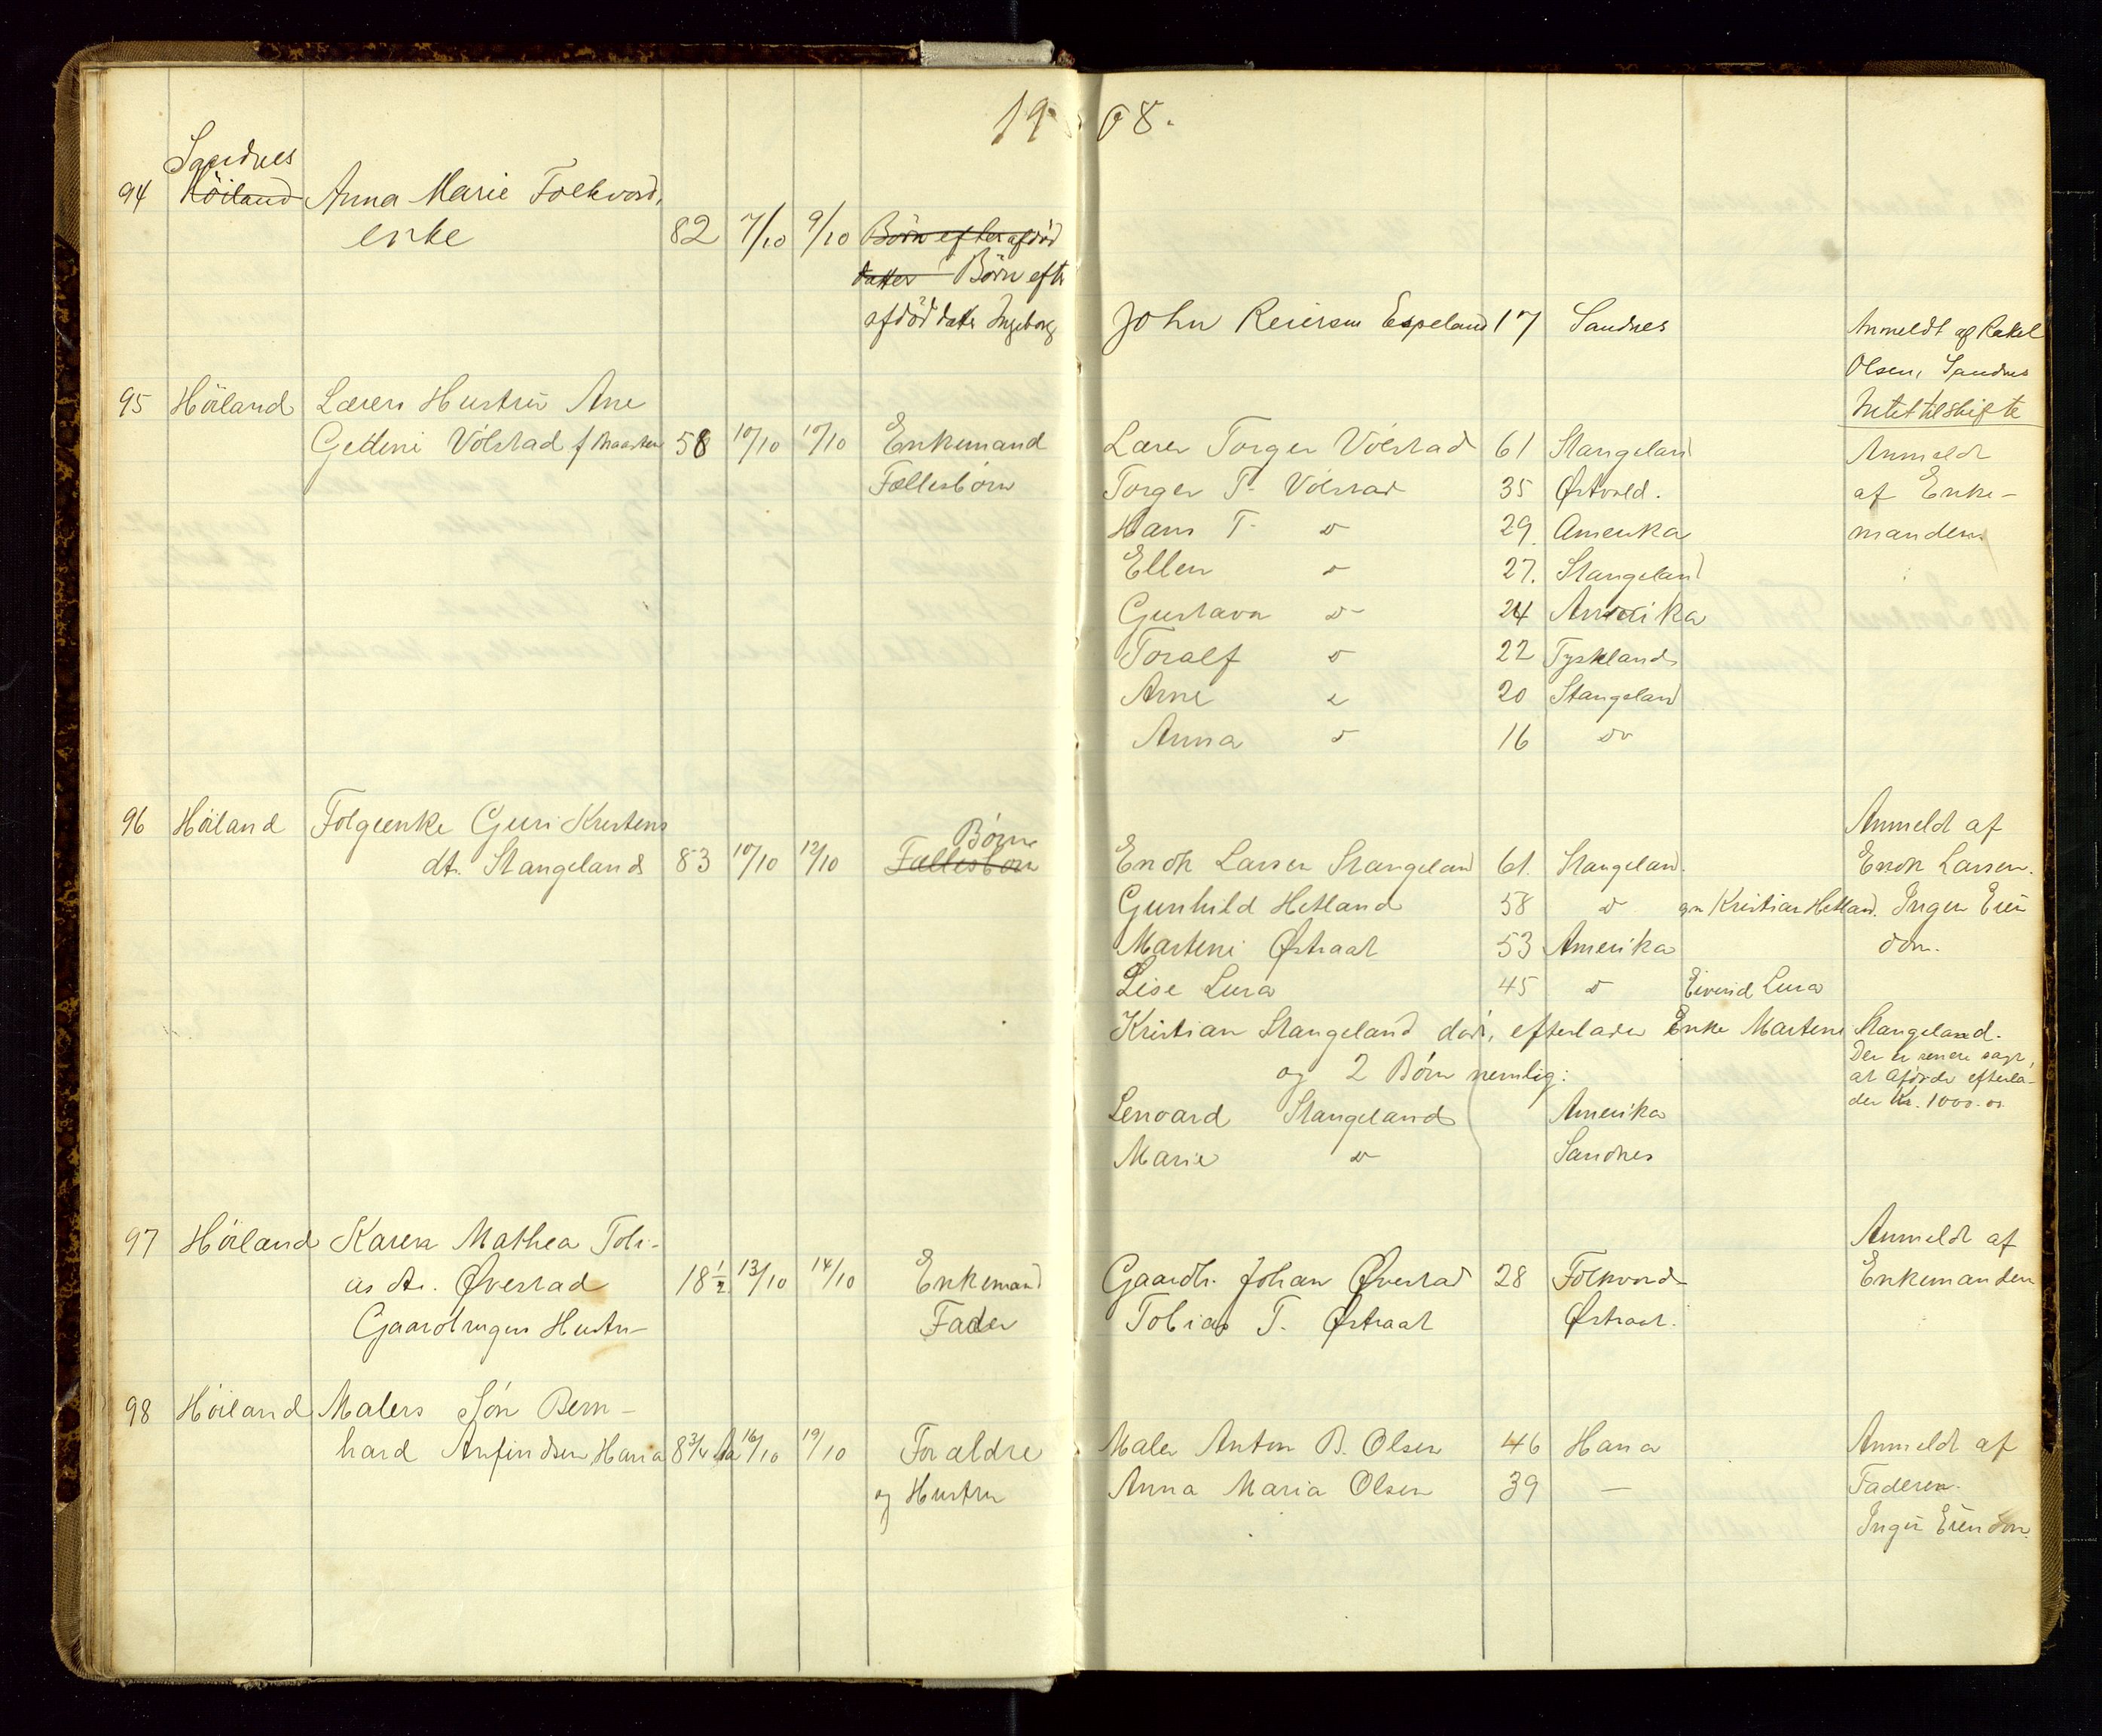 19 08.
Sandnes
94 Höiland Anna Marie Folkvord,
enke 82 7/10 9/10 Börn efter afdöd
datter Börn eftr
afdöd datr Ingeborg John Reiersen Espeland 17 Sandnes Anmeldt af Rakel
Olsen, Sandnes
Intet til skifte
95 Höiland Lærers Hustru Ane
Getteni Völstad f. 58 10/10 10/10 Enkemand Lærer Torger Völstad 61 Stangeland Anmeldt
Fællesbörn Torger T. Völstad 35 Østvold. af Enke-
Hans T. do 29. Amerika manden
Ellen do 27. Stangeland
Gustava do 24 Amerika
Toralf do 22 Tyskland
Arne do 20 Stangeland
Anna do 16 do
96 Höiland Folgeenke Guri Kristens Börn Anmeldt af
dtr. Stangeland 83 10/10 12/10 Fællesbörn Enok Larsen Stangeland 61. Stangeland. Enok Larsen.
Gunhild Hetland 58 do gm Kristian Hetland. Ingen Eien
Marteni Østraat 53 Amerika dom.
Lise Lura 45 do Eivind Lura
Kristian Stangeland död, efterlader Enke Martene Stangeland.
og 2 Börn nemlig: Der er senere sagt,
at afdöde efterla-
Lenoard Stangeland Amerika der Kr. 1000.00
Marie do Sandnes
97 Höiland Karen Mathea Tobi- Anmeldt af
as dtr. Øvestad 18 1/2 13/10 14/10 Enkemand Gaardbr. Johan Øvestad 28 Folkvord Enkemanden
Gaardbrugers Hustru Fader Tobias T. Østraat Østraat.
98 Höiland Malers Sön Bern-
hard Anfindsen Hana 8 3/4 16/10 19/10 Foraldre Maler Anton B. Olsen 46 Hana Anmeldt af
og Hustru Anna Maria Olsen 39 — Faderen.
Ingen Eiendom.